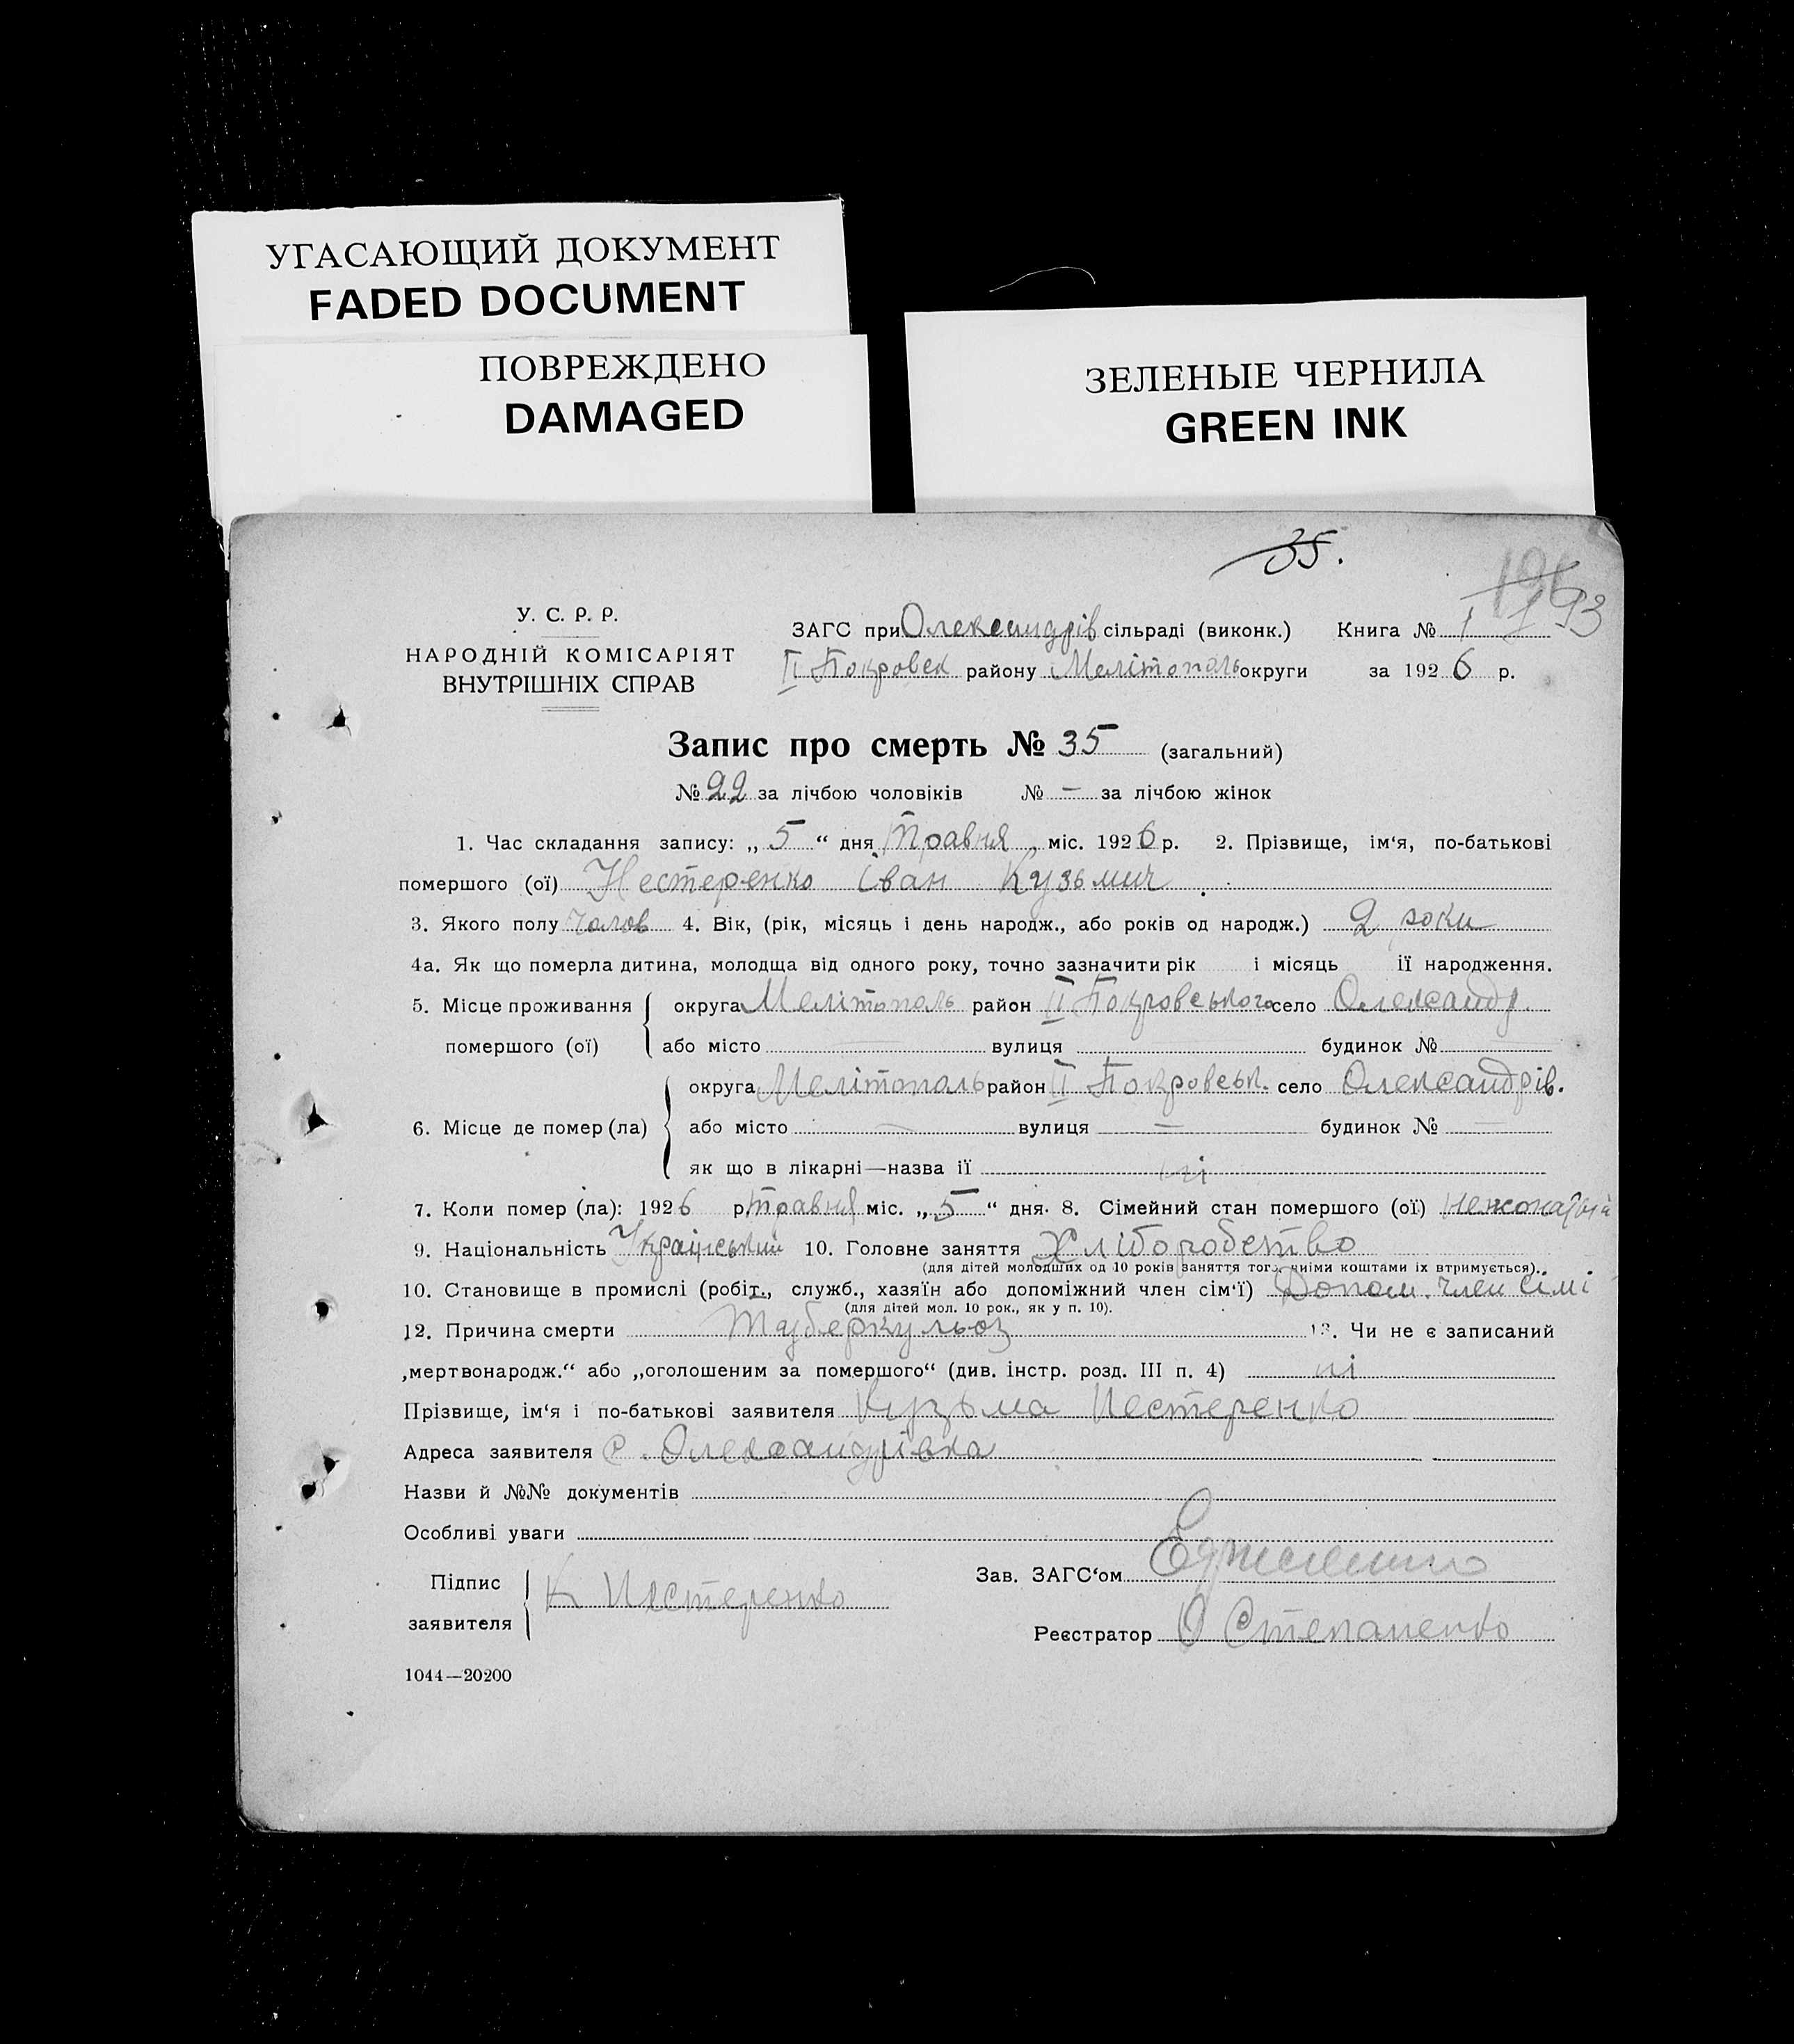 УГАСАЮЩИЙ ДОКУМЕНТ
FADED DOCUMENT
ПОВРЕЖДЕНО
DAMAGED
ЗЕЛЕНЫЕ ЧЕРНИЛА
GREEN INK
35.
193
У. С. Р. Р.
НАРОДНІЙ КОМІСАРІЯТ
ВНУТРІШНІХ СПРАВ
ЗАГС при Олександрів сільраді (виконк.) Книга № 1
II Покровск району Мелітополь округи за 1926 р.
Запис про смерть № 35 (загальний)
№ 22 за лічбою чоловіків № — за лічбою жінок
1. Час складання запису: „ 5 “ дня Травня міс. 1926 р. 2. Прізвище, ім‘я, по-батькові
помершого (ої) Нестеренко Іван Кузьмич
3. Якого полу чолов 4. Вік, (рік, місяць і день народж., або років од народж.) 2 роки
4а. Як що померла дитина, молодща від одного року, точно зазначити рік і місяць її народження.
5. Місце проживання помершого (ої) округа Мелітополь район II Покровського село Олександр.
або місто — вулиця — будинок № —
6. Місце де помер (ла) округа Мелітополь район II Покровськ. село Олександрів.
або місто — вулиця — будинок № —
як що в лікарні—назва її ні
7. Коли помер (ла): 1926 р. травня міс. „ 5 “ дня. 8. Сімейний стан помершого (ої) нежонатий
9. Національність Український 10. Головне заняття Хліборобство
(для дітей молодших од 10 років заняття того, чиїми коштами їх втримується).
10. Становище в промислі (робіт., служб., хазяїн або допоміжний член сім‘ї) Допом. член сімі
(для дітей мол. 10 рок., як у п. 10).
12. Причина смерти Туберкульоз 13. Чи не є записаний
„мертвонародж.“ або „оголошеним за помершого“ (див. інстр. розд. III п. 4) ні
Прізвище, ім‘я і по-батькові заявителя Кузьма Нестеренко
Адреса заявителя с. Олександрівка
Назви й №№ документів
Особливі уваги
Підпис заявителя К Нестеренко
Зав. ЗАГС‘ом
Реєстратор О Степаненко
1044—20200